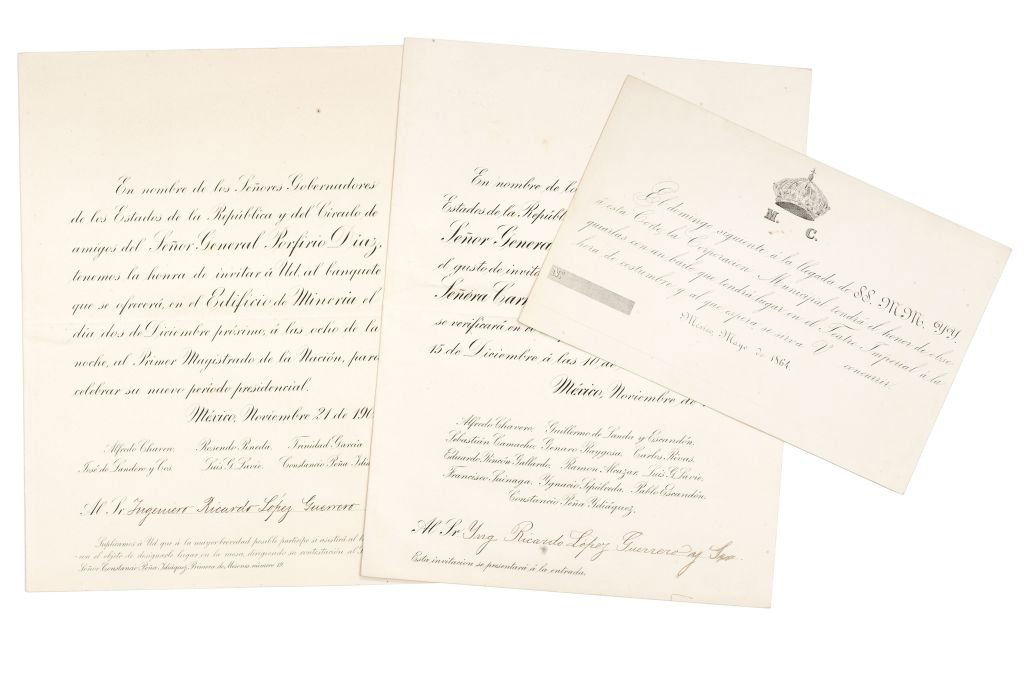 En nombre de los Señores Gobernadores
de los Estados de la República y del Círculo de
amigos del Señor General Porfirio Díaz,
tenemos la honra de invitar á Ud. al banquete
que se ofrecerá, en el Edificio de Minería el
día dos de Diciembre próximo, á las ocho de la
noche, al Primer Magistrado de la Nación, para
celebrar su nuevo período presidencial.
México, Noviembre 21 de 190
Alfredo Chavero. Rosendo Pineda. Trinidad García
José de Landero y Cos. Luis G. Lavie. Constancio Peña Idiá
Al Sr. Ingeniero Ricardo López Guerrero
Suplicamos á Ud. que á la mayor brevedad posible participe si asistirá al
con el objeto de designarle lugar en la mesa, dirigiendo su contestación al
Señor Constancio Peña Idiáquez, Primera de Mesones número 19.
En nombre de lo
Estados de la Repúbl
Señor Genera
el gusto de invita
Señora Carm
se verificará en e
15 de Diciembre á las 10 de
México, Noviembre de
Alfredo Chavero. Guillermo de Landa y Escandón.
Sebastián Camacho. Genaro Raygosa. Carlos Rivas.
Eduardo Rincón Gallardo. Ramon Alcazar. Luis G. Lavie.
Francisco Suinaga. Ygnacio Sepúlveda. Pablo Escandón.
Constancio Peña Ydiáquez.
Al Sr. Yng. Ricardo López Guerrero y Sra
Esta invitacion se presentará á la entrada.
M. C.
El domingo siguiente á la llegada de SS. M.M. YY.
á esta Corte, la Corporacion Municipal tendrá el honor de obse
quiarlas con un baile que tendrá lugar en el Teatro Imperial á la
hora de costumbre y al que espera se sirva V. concurrir.
México, Mayo de 1864.
S.